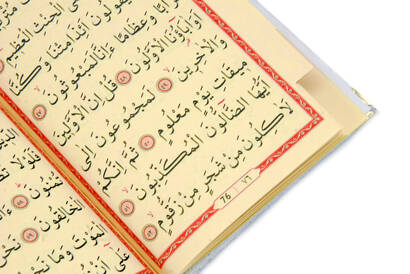 الْحِنْثِ الْعَظِيمِ
يَقُولُونَ اَئِذَا مِتْنَا وَكُنَّا
وَعِظَامًا ءَاِنَّا لَمَبْعُوثُونَ ﴿٤٧﴾
اَوَاٰبَٓاؤُنَا الْاَوَّلُونَ ﴿٤٨﴾ قُلْ اِنَّ الْاَوَّلِينَ
وَالْاٰخِرِينَ ﴿٤٩﴾ لَمَجْمُوعُونَ اِلٰى
مِيقَاتِ يَوْمٍ مَعْلُومٍ ﴿٥٠﴾ ثُمَّ اِنَّكُمْ
اَيُّهَا الضَّٓالُّونَ الْمُكَذِّبُونَ ﴿٥١﴾
لَاٰكِلُونَ مِنْ شَجَرٍ مِنْ زَقُّومٍ ﴿٥٢﴾
76 ٧٦
فَلَوْلَا
تُمْنُونَ ﴿٥٨﴾
الْخَالِقُونَ ﴿٥٩﴾ نَحْنُ
الْمَوْتَ وَمَا نَحْنُ
عَلٰٓى اَنْ